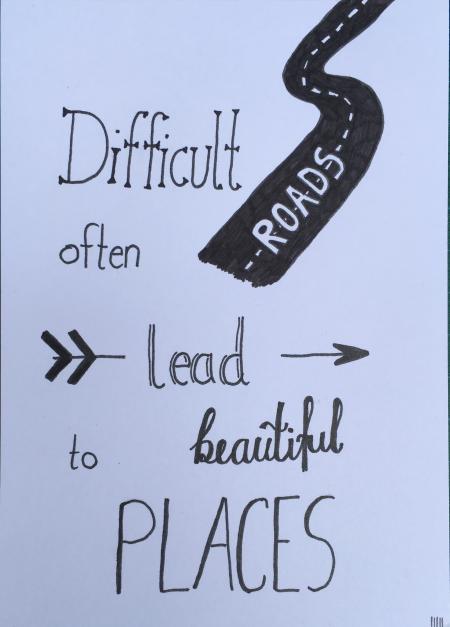 Difficult ROADS
often
lead
to beautiful
PLACES